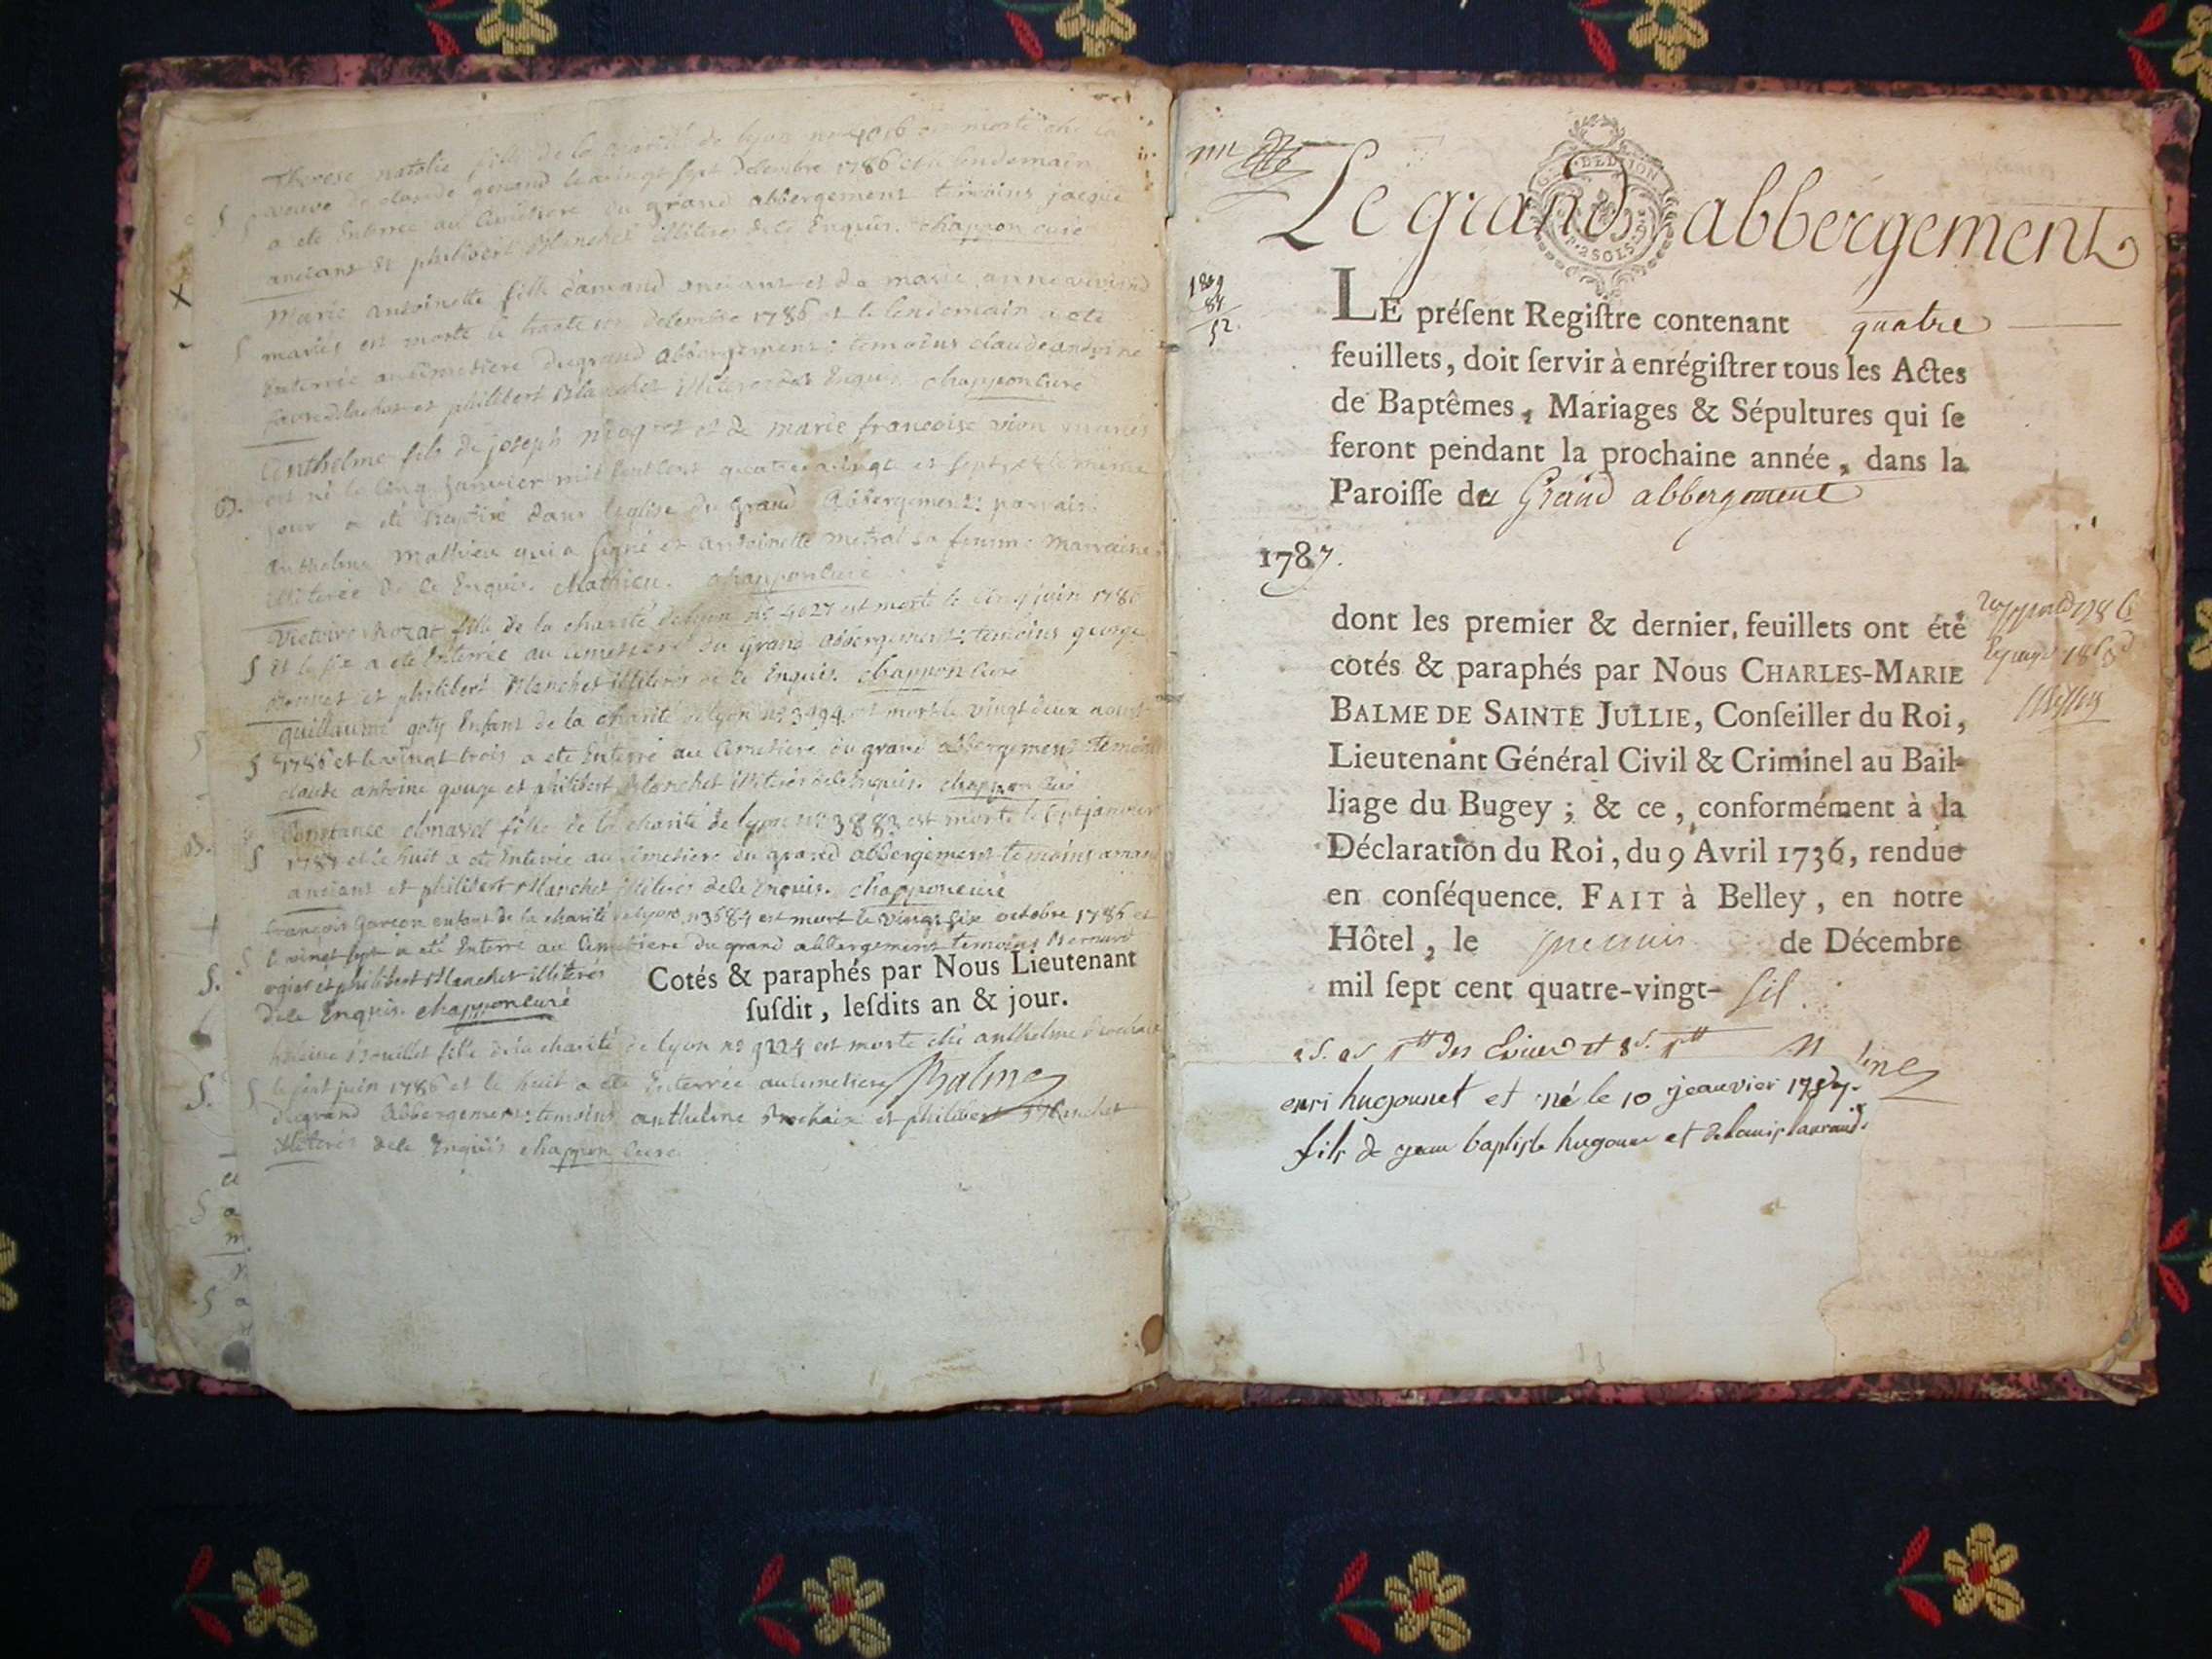 Therese natalie fille de la charité de lyon nro 4016 est morte ché la
veuve de claude genand le vingt sept decembre 1786 et le lendemain
a eté Enterrée au Cimetiere du grand abbergement temoins jacque
anciant et philibert Blanchet illiteres de ce Enquis. chappon curé
Marie Antoinette fille d'amand anciant et de marie anne
mariés est morte le trente decembre 1786 et le lendemain a eté
Enterrée au Cimetiere du grand Abbergement: temoins claude antoine
et philibert Blanchet illiteres de ce Enquis. chappon curé
Anthelme fils de joseph et de marie francoise mariés
est né le cinq janvier mil sept cent quatre vingt et sept et le meme
jour a eté baptisé dans leglise du grand Abbergement: parrain
Anthelme Mathieu qui a signé et antoinette metral sa femme marraine
illiterée de ce Enquis. Mathieu. chappon curé
Victoire fille de la charité de lyon no 4027 est morte le cinq juin 1786
et le six a eté Enterrée au Cimetiere du grand abbergement: temoins george
et philibert Blanchet illiterés de ce Enquis. chappon curé
guillaume goty Enfant de la charité de lyon no 3494 est mort le vingt deux aoust
1786 et le vingt trois a eté Enterré au Cimetiere du grand abbergement temoins
claude antoine gouge et philibert Blanchet illiterés de ce Enquis. chappon curé
Constance fille de la charité de lyon no 3883 est morte le sept janvier
1787 et le huit a eté Enterrée au Cimetiere du grand abbergement temoins aman
anciant et philibert Blanchet illiterés de ce Enquis. chappon curé
françois garçon enfant de la charité de lyon n 3684 est mort le vingt six octobre 1786 et
le vingt sept a eté Enterré au Cimetiere du grand abbergement temoins Bernard
et philibert Blanchet illiterés
de ce Enquis. chappon curé
Cotés & paraphés par Nous Lieutenant
ſuſdit, leſdits an & jour.
fille de la charité de lyon no 9224 est morte ché anthelme Brochaix
le sept juin 1786 et le huit a eté Enterrée au Cimetiere
du grand Abbergement: temoins anthelme Brochaix et philibert Blanchet
illiterés de ce Enquis chappon curé
Balme
Le grand abbergement
G. DE DIJON
2 SOLS
LE préſent Regiſtre contenant quatre
feuillets, doit ſervir à enrégiſtrer tous les Actes
de Baptêmes, Mariages & Sépultures qui ſe
feront pendant la prochaine année, dans la
Paroiſſe du Grand abbergement
1787.
dont les premier & dernier, feuillets ont été
cotés & paraphés par Nous CHARLES-MARIE
BALME DE SAINTE JULLIE, Conſeiller du Roi,
Lieutenant Général Civil & Criminel au Bail-
liage du Bugey ; & ce, conformément à la
Déclaration du Roi, du 9 Avril 1736, rendue
en conſéquence. FAIT à Belley, en notre
Hôtel, le premier de Décembre
mil ſept cent quatre-vingt- six
enri hugonnet et né le 10 jeanvier 1787.
fils de jean baptiste hugonne et de